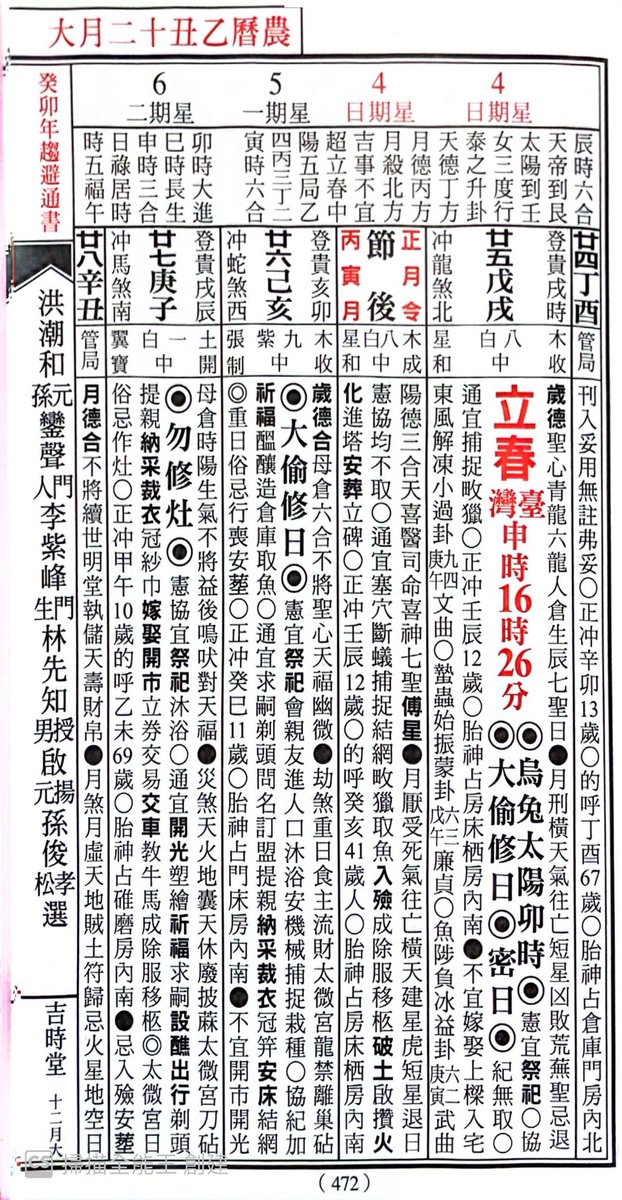 農曆乙丑十二月大
4
星期日
4
星期日
5
星期一
6
星期二
辰時六合
天帝到艮
太陽到壬
女三度行
泰之升卦
天德丁方
月德丙方
月殺北方
吉事不宜
超立春中
陽五局乙
四丙三丁二
寅時六合
卯時大進
巳時長生
申時三合
日祿居時
時五福午
廿四丁酉
管局
刊入妥用無註弗妥○正冲辛卯13歲○的呼丁酉67歲○胎神占倉庫門房內北
登貴戌時
廿五戊戌
冲龍煞北
木收
八中
白
星和
歲德聖心青龍六龍人倉生辰七聖日●月刑橫天氣往亡短星凶敗荒蕪聖忌退
立春
臺灣申時16時26分
◉烏兔太陽卯時◉憲宜祭祀○協
◉大偷修日◉密日◉紀無取○
通宜捕捉畋獵○正冲壬辰12歲○胎神占房床栖房內南●不宜嫁娶上樑入宅
東風解凍小過卦九四庚午文曲○蟄蟲始振蒙卦六三戊午廉貞○魚陟負冰益卦六二庚寅武曲
正月令
節後
丙寅月
木成
八中
白
星和
陽德三合天喜醫司命喜神七聖傅星●月厭受死氣往亡橫天建星虎短星退日
憲協均不取○通宜塞穴斷蟻捕捉結網畋獵取魚入殮成除服移柩破土啟攢火
化進塔安葬立碑○正冲壬辰12歲○的呼癸亥41歲人○胎神占房床栖房內南
登貴亥卯
廿六己亥
冲蛇煞西
木收
九中
紫
張制
歲德合母倉六合不將聖心天福幽微●劫煞重日食主流財太微宮龍禁離巢砧
◉大偷修日◉憲宜祭祀會親友進人口沐浴安機械捕捉栽種○協紀加
祈福醞釀造倉庫取魚○通宜求嗣剃頭問名訂盟提親納采裁衣冠笄安床結網
◎重日俗忌行喪安塟○正冲癸巳11歲○胎神占門床房內南●不宜開市開光
登貴戌辰
廿七庚子
冲馬煞南
土開
一中
白
翼寶
母倉時陽生氣不將益後鳴吠對天福●災煞天火地囊天休廢披蔴太微宮刀砧
◉勿修灶◉憲協宜祭祀沐浴○通宜開光塑繪祈福求嗣設醮出行剃頭
提親納采裁衣冠紗巾嫁娶開市立券交易交車教牛馬成除服移柩◎太微宮日
俗忌作灶○正冲甲午10歲的呼乙未69歲○胎神占碓磨房內南●忌入殮安塟
廿八辛丑
管局
月德合不將續世明堂執儲天壽財帛●月煞月虛天地賊土符歸忌火星地空日
癸卯年趨避通書
洪潮和元孫鑾聲門人李紫峰門生林先知授男啟揚元孫俊孝松選
吉時堂
十二月大
(472)
CS 掃描全能王 創建